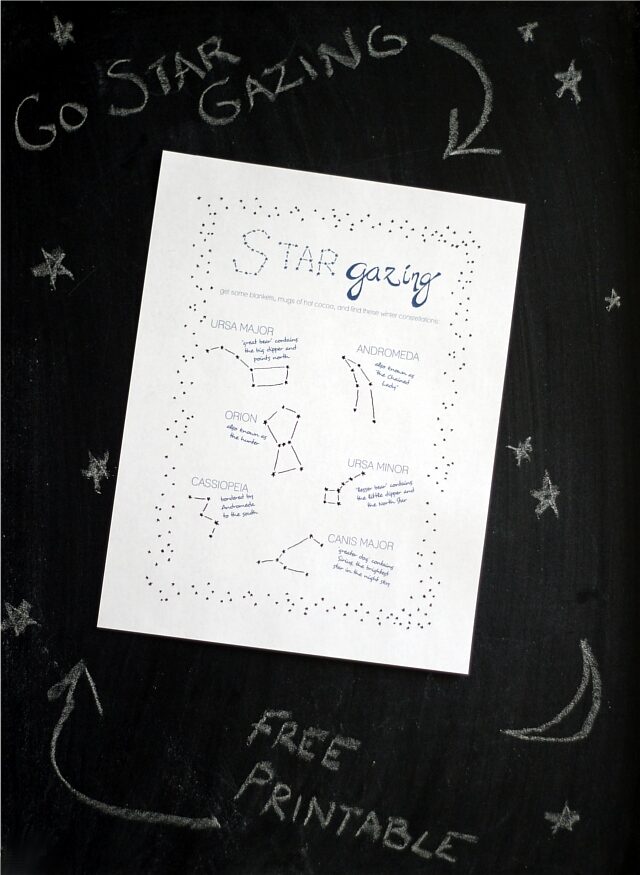 GO STAR
GAZING
STAR gazing
get some blankets, mugs of hot cocoa, and find these winter constellations:
URSA MAJOR
'great bear' contains
the big dipper and
points north
ANDROMEDA
also known as
'the Chained
Lady'
ORION
also known as
the hunter
URSA MINOR
'lesser bear' contains
the little dipper and
the North Star
CASSIOPEIA
bordered by
Andromeda
to the south
CANIS MAJOR
'greater dog' contains
Sirius, the brightest
star in the night sky
FREE
PRINTABLE